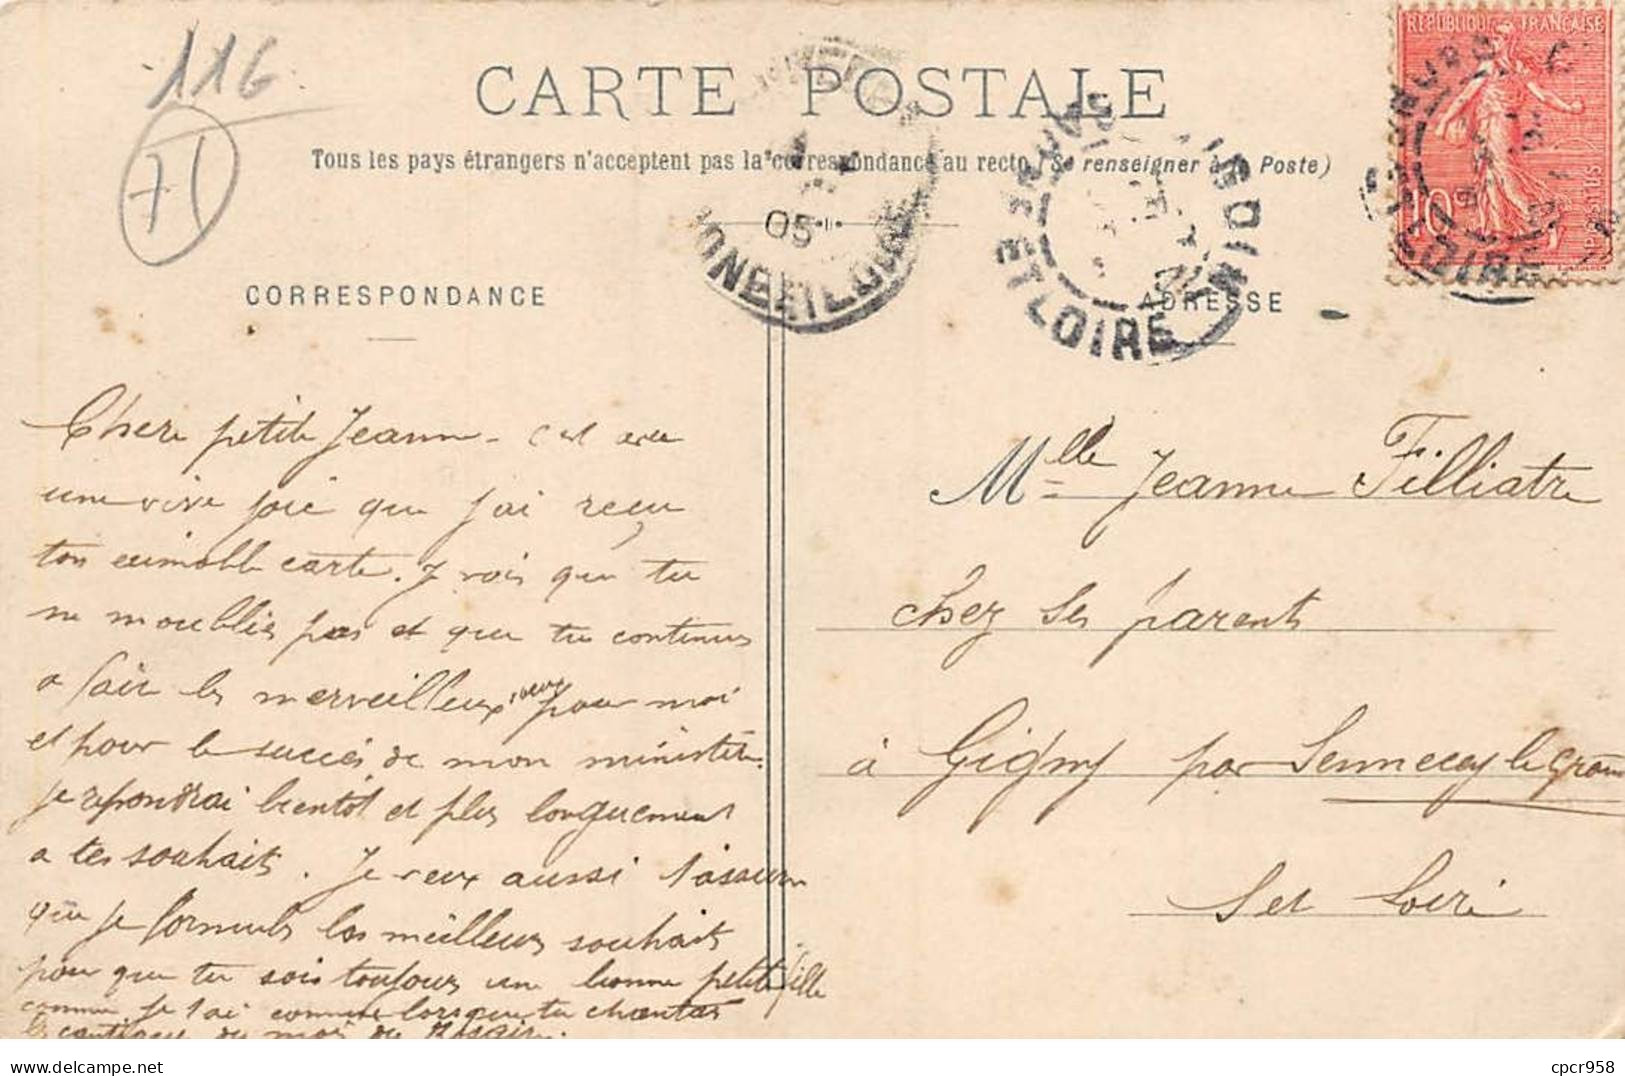 116
71
CARTE POSTALE
Tous les pays étrangers n'acceptent pas la correspondance au recto (Se renseigner à la Poste)
REPUBLIQUE FRANÇAISE
10
POSTES
05
ET LOIRE
LOIRE
CORRESPONDANCE
ADRESSE
Chere petite Jeanne - c'est avec
une vive joie que j'ai reçu
ton aimable carte. Je vois que tu
ne m'oublies pas et que tu continues
a faire les merveilleux vœux pour moi
et pour le succés de mon ministère.
je repondrai bientôt et plus longuement
a tes souhaits. Je veux aussi t'assurer
que je formule les meilleurs souhaits
pour que tu sois toujours une bonne petite fille
comme je t'ai connue lorsque tu chantas
les cantiques du mois du Rosaire.
Mlle Jeanne Filliatre
chez ses parents
à Gigny par Sennecey le Grand
S et Loire
cpcr958